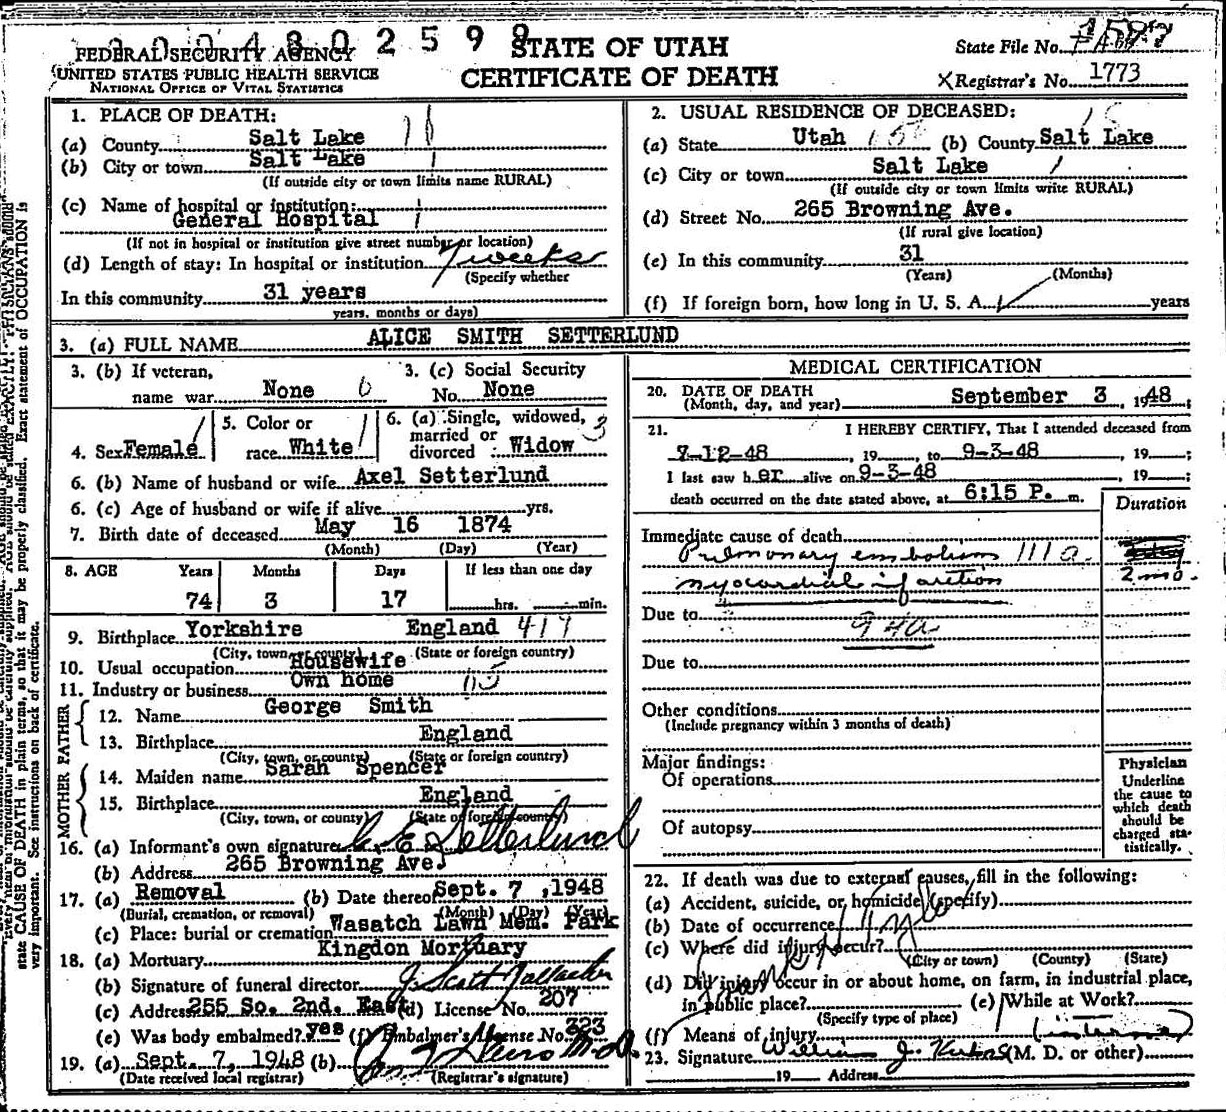 2 0 0 4 8 0 2 5 9 9
FEDERAL SECURITY AGENCY
UNITED STATES PUBLIC HEALTH SERVICE
NATIONAL OFFICE OF VITAL STATISTICS
STATE OF UTAH
CERTIFICATE OF DEATH
State File No.
X Registrar's No. 1773
1. PLACE OF DEATH:
(a) County Salt Lake
(b) City or town Salt Lake
(If outside city or town limits name RURAL)
(c) Name of hospital or institution:
General Hospital
(If not in hospital or institution give street number or location)
(d) Length of stay: In hospital or institution 7 weeks
(Specify whether
In this community 31 years
years, months or days)
2. USUAL RESIDENCE OF DECEASED:
(a) State Utah (b) County Salt Lake
(c) City or town Salt Lake
(If outside city or town limits write RURAL)
(d) Street No. 265 Browning Ave.
(If rural give location)
(e) In this community 31
(Years) (Months)
(f) If foreign born, how long in U. S. A. years
3. (a) FULL NAME ALICE SMITH SETTERLUND
3. (b) If veteran,
name war None
3. (c) Social Security
No. None
4. Sex Female
5. Color or
race White
6. (a) Single, widowed,
married or
divorced Widow 3
6. (b) Name of husband or wife Axel Setterlund
6. (c) Age of husband or wife if alive yrs.
7. Birth date of deceased May 16 1874
(Month) (Day) (Year)
8. AGE Years Months Days If less than one day
74 3 17 hrs. min.
9. Birthplace Yorkshire England 419
(City, town or county) (State or foreign country)
10. Usual occupation Housewife
11. Industry or business Own home
FATHER
12. Name George Smith
13. Birthplace England
(City, town, or county) (State or foreign country)
MOTHER
14. Maiden name Sarah Spencer
15. Birthplace England
(City, town, or county) (State or foreign country)
16. (a) Informant's own signature C. E. Setterlund
(b) Address 265 Browning Ave.
17. (a) Removal (b) Date thereof Sept. 7, 1948
(Burial, cremation, or removal) (Month) (Day) (Year)
(c) Place: burial or cremation Wasatch Lawn Mem. Park
18. (a) Mortuary Kingdon Mortuary
(b) Signature of funeral director J. Scott Gallacher
(c) Address 255 So. 2nd. East (d) License No. 207
(e) Was body embalmed? yes (f) Embalmer's License No. 323
19. (a) Sept. 7, 1948 (b)
(Date received local registrar) (Registrar's signature)
MEDICAL CERTIFICATION
20. DATE OF DEATH
(Month, day, and year) September 3, 1948;
21. I HEREBY CERTIFY, That I attended deceased from
7-12-48, 19 , to 9-3-48, 19 ;
I last saw her alive on 9-3-48, 19 ;
death occurred on the date stated above, at 6:15 P. m.
Duration
Immediate cause of death
Pulmonary embolism 111a.
myocardial infarction 2 mo.
Due to
94a
Due to
Other conditions
(Include pregnancy within 3 months of death)
Major findings:
Of operations
Of autopsy
Physician
Underline
the cause to
which death
should be
charged sta-
tistically.
22. If death was due to external causes, fill in the following:
(a) Accident, suicide, or homicide (specify)
(b) Date of occurrence
(c) Where did injury occur?
(City or town) (County) (State)
(d) Did injury occur in or about home, on farm, in industrial place,
in public place? (e) While at Work?
(Specify type of place)
(f) Means of injury (interne)
23. Signature William J. (M. D. or other)
19 Address
state CAUSE OF DEATH in plain terms, so that it may be properly classified. Exact statement of OCCUPATION is
very important. See instructions on back of certificate.